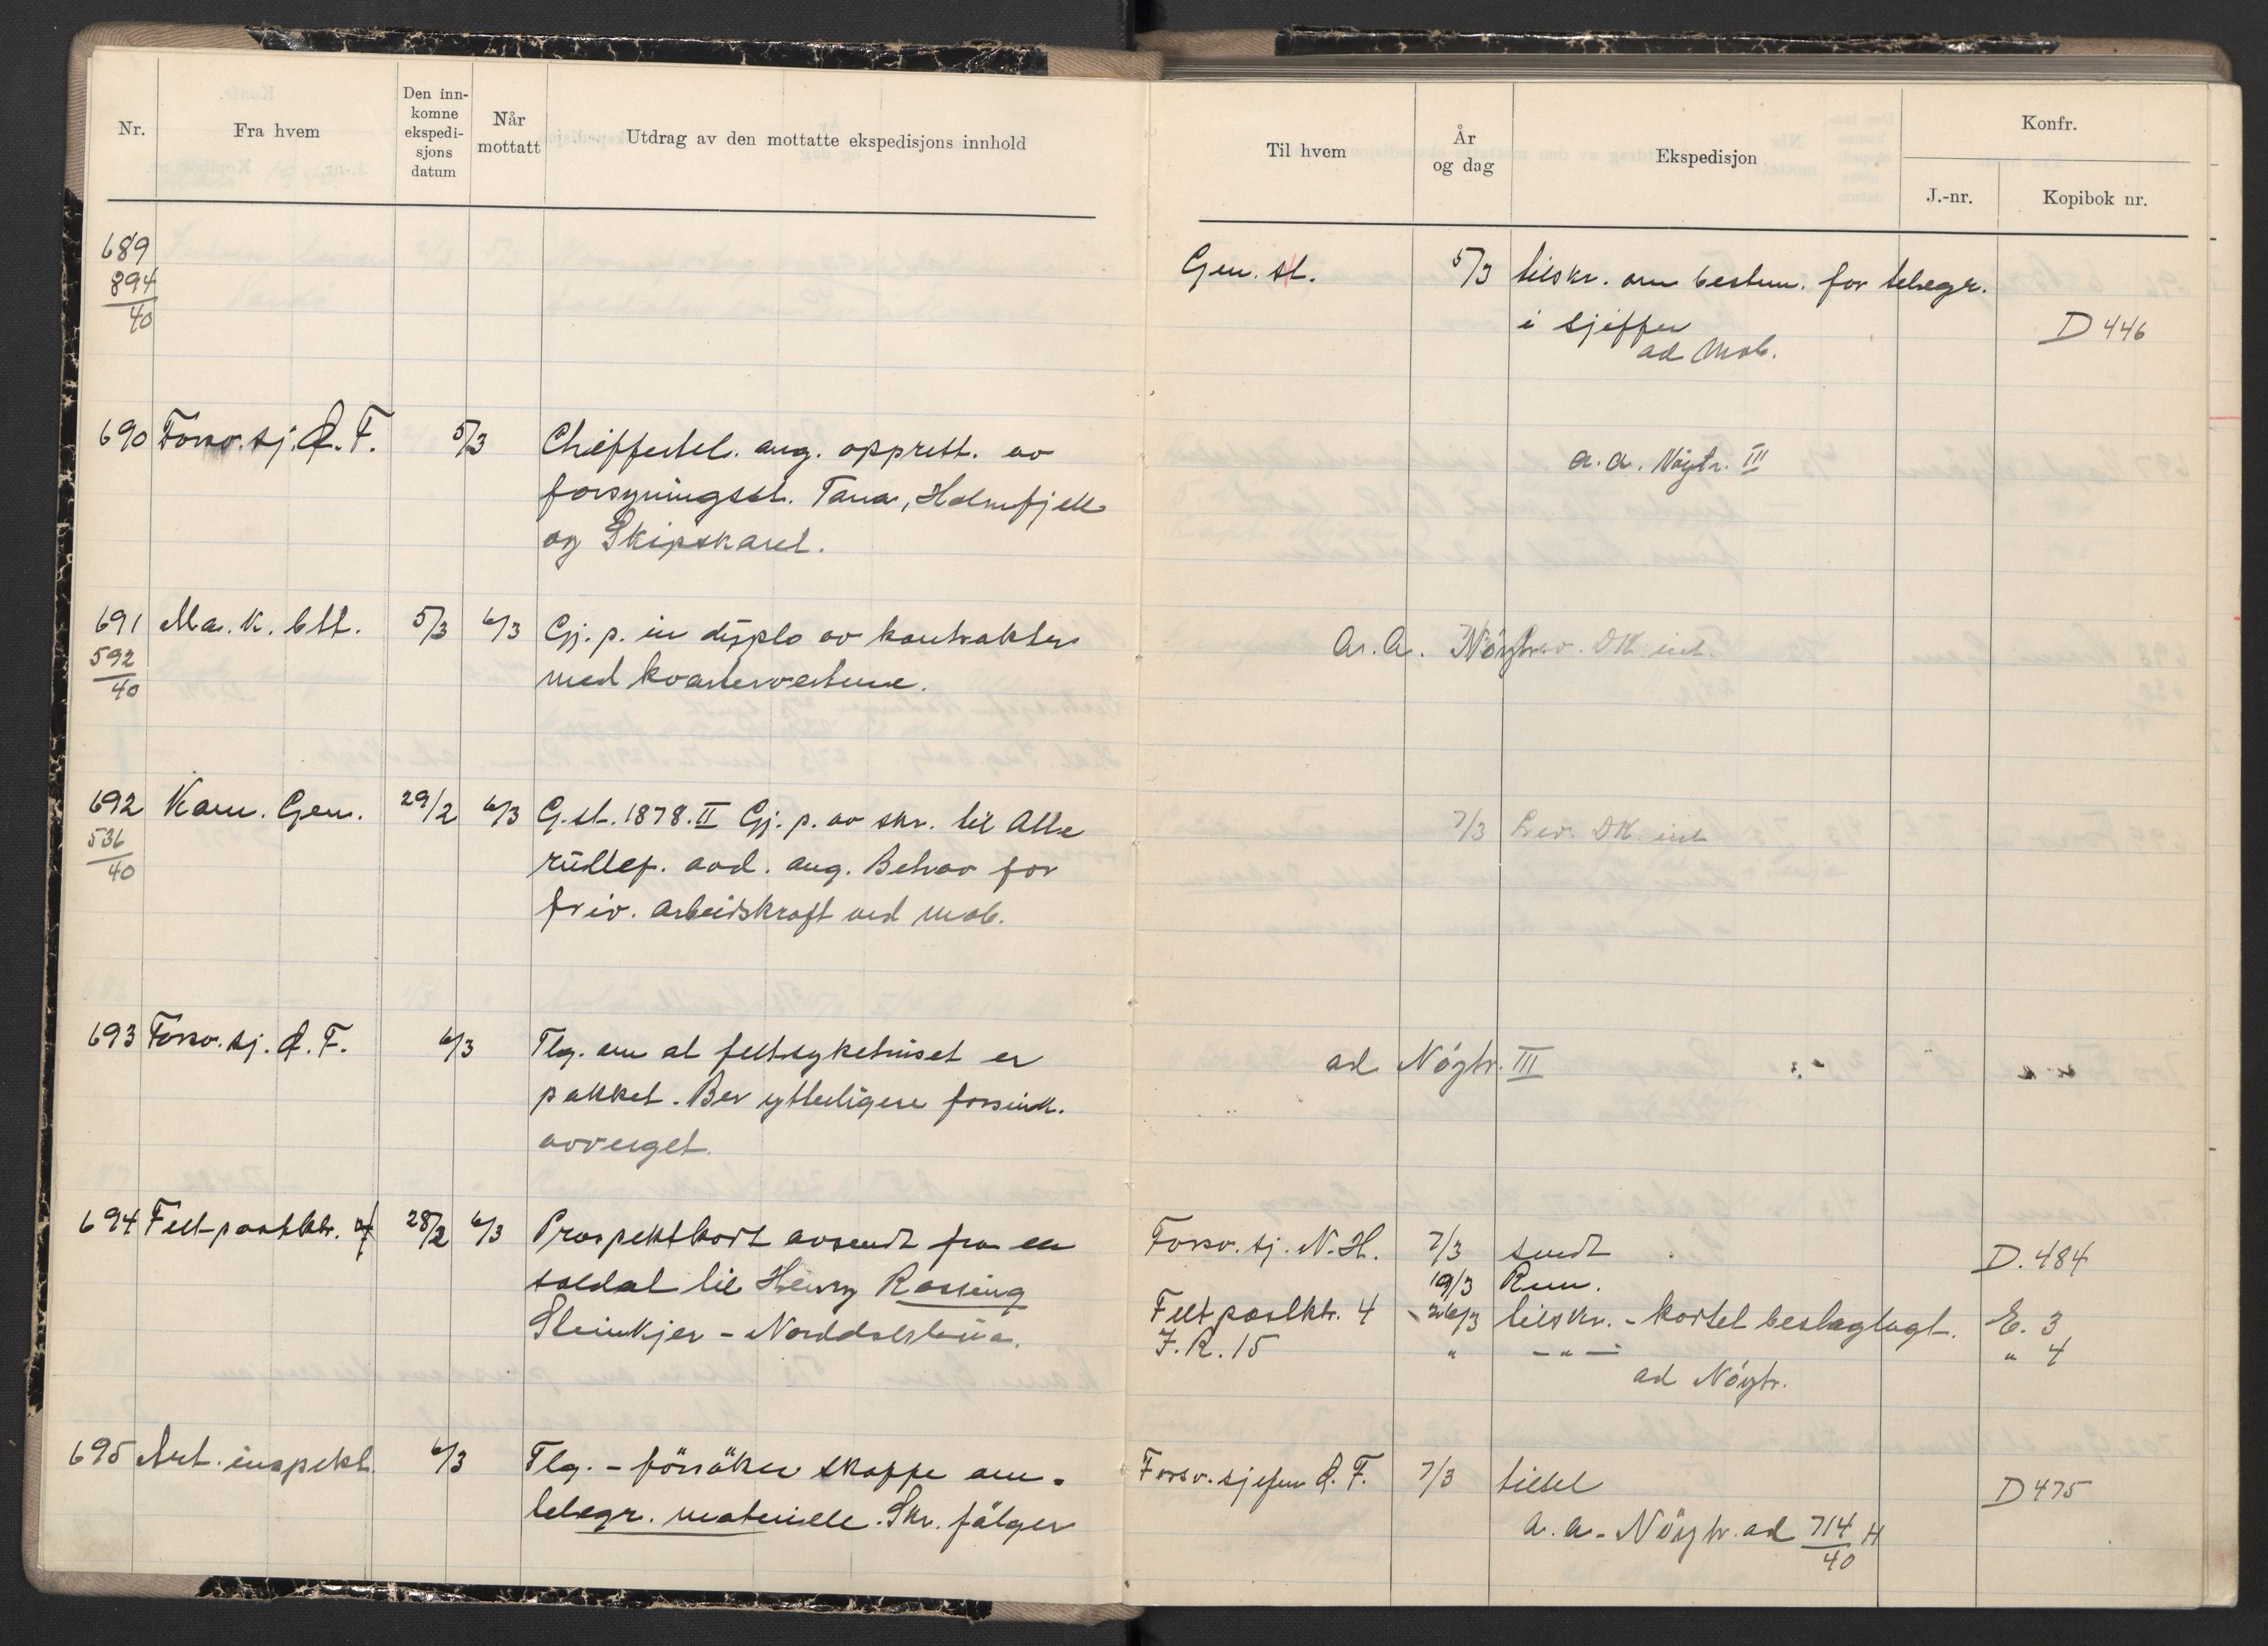 Nr.
Fra hvem
Den inn-
komne
ekspedi-
sjons
datum
Når
mottatt
Utdrag av den mottatte ekspedisjons innhold
Til hvem
År
og dag
Ekspedisjon
Konfr.
J.-nr.
Kopibok nr.
689 Gen. st. 5/3 tilskr. om bestem. for telegr.
894
40
i sjiffer D 446
ad Mob.
690 Forsv. sj. Ø. F. 5/3 Chiffertel. ang. opprett. av a. a. Nøytr. III
forsyningsst. Tana, Holmfjell
og Skipskarel.
691 Ma. K. btt. 5/3 6/3 Gj. p. in duplo av kontrakter a. a. Nöytr.
592
40
med kvartervertene.
692 Kom. Gen. 29/2 6/3 G. st. 1878. II Gj. p. av skr. til Alle 7/3 DK.
536
40
rullef. avd. ang. Behov for
friv. arbeidskraft ved mob.
693 Forsv. sj. Ø. F. 6/3 Tlg. om at feltsykehuset er ad Nöytr. III
pakket. Ber ytterligere forsink.
avverget.
694 Feltpostktr. 4 28/2 6/3 Prospektkort avsendt fra en Forsv. sj. N. H. 7/3 sendt D. 484
soldat til Henry Rossing 19/3 Rem.
Steinkjer - Norddalsbrua. Feltpostktr. 4 26/3 tilskr. - kortet beslaglagt. E. 3
I. R. 15 " - " - " 4
ad Nöytr.
695 Art. inspekt. 6/3 Tlg. - försöker skaffe om. Forsv. sjefen Ø. F. 7/3 tiltel D 475
telegr. materielle. Skr. fölger a. a. Nöytr. ad 714 H
40